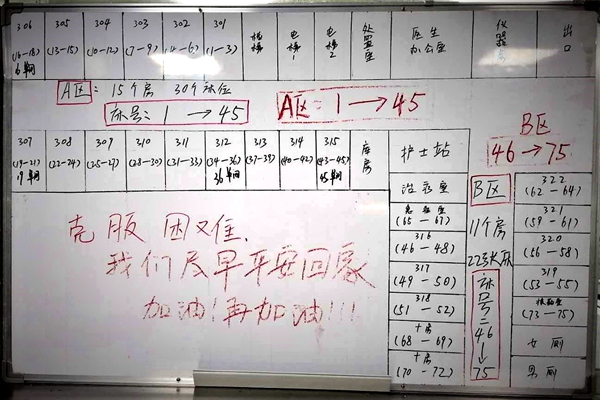 306
(16-18)
305
(13-15)
304
(10-12)
303
(7-9)
302
(4-6)
301
(1-3)
电梯1
电梯2
处置室
医生
办公室
出口
A区: 15个房 30个床位
床号: 1 → 45
A区: 1 → 45
B区
46 → 75
307
(19-21)
19单间
308
(22-24)
309
(25-27)
310
(28-30)
311
(31-33)
312
(34-36)
36单间
313
(37-39)
314
(40-42)
315
(43-45)
45单间
库房
护士站
治疗室
(65-67)
316
(46-48)
317
(49-50)
318
(51-52)
(68-69)
(70-72)
B区
11个房
22张床
床号: 46 → 75
322
(62-64)
321
(59-61)
320
(56-58)
319
(53-55)
(73-75)
女厕
男厕
克服困难,
我们及早平安回家
加油!再加油!!!